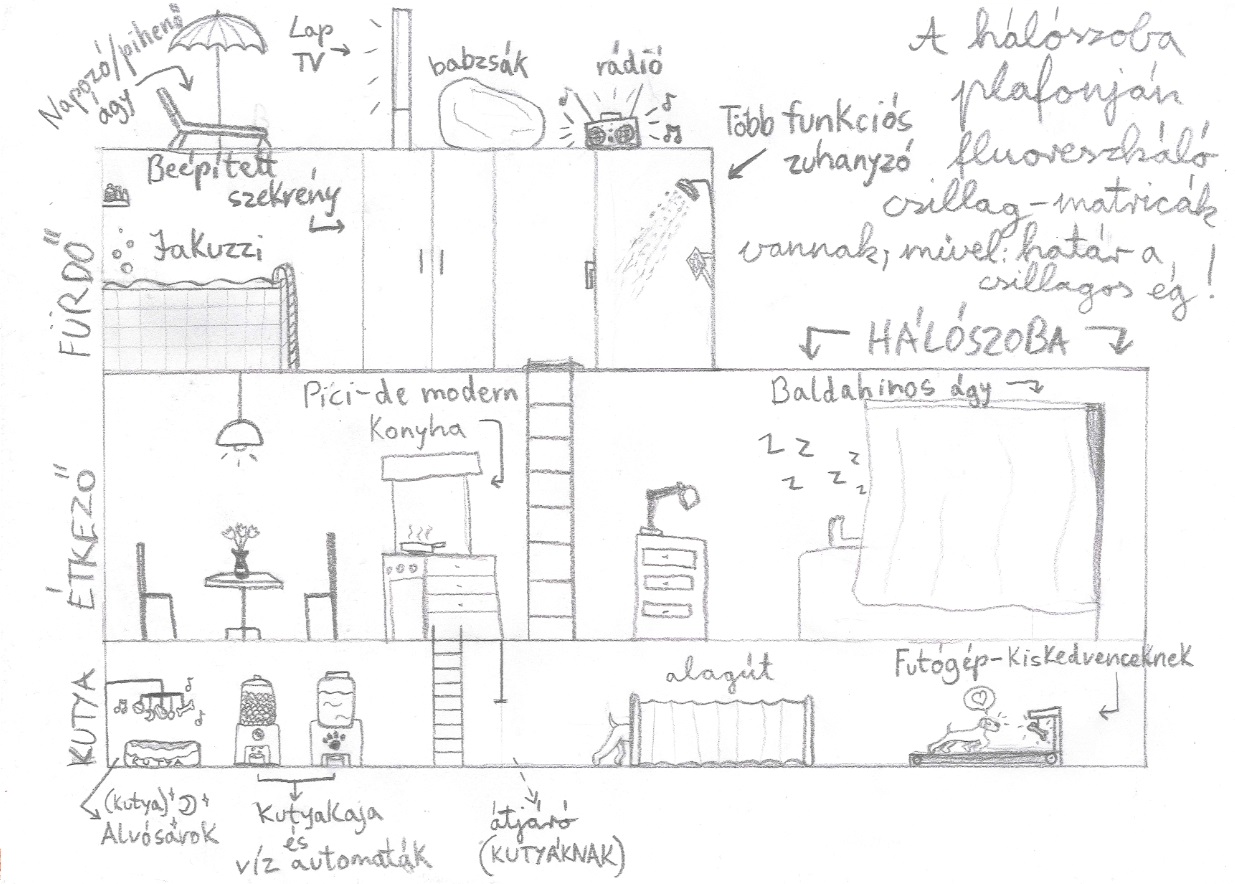 Napozó/pihenő
ágy
Lap
TV
babzsák
rádió
A hálószoba
plafonján
fluoreszkáló
csillag-matricák
vannak, mivel: határ a
csillagos ég!
Több funkciós
zuhanyzó
Beépített
szekrény
Jakuzzi
FÜRDŐ
HÁLÓSZOBA
Pici-de modern
Konyha
Baldahinos ágy
z z
z z z z
ÉTKEZŐ
alagút
Futógép-Kiskedvenceknek
KUTYA
KUTYA
(kutya)
Alvósarok
Kutyakaja
és
víz automaták
átjáró
(KUTYÁKNAK)